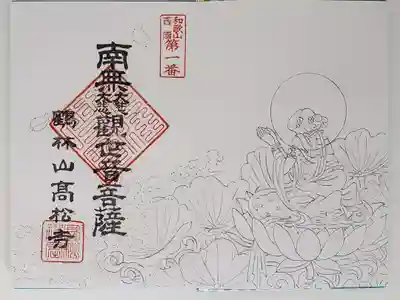 和歌山
西国
第一番
南無大慈大悲観世音菩薩
鶴林山高松寺